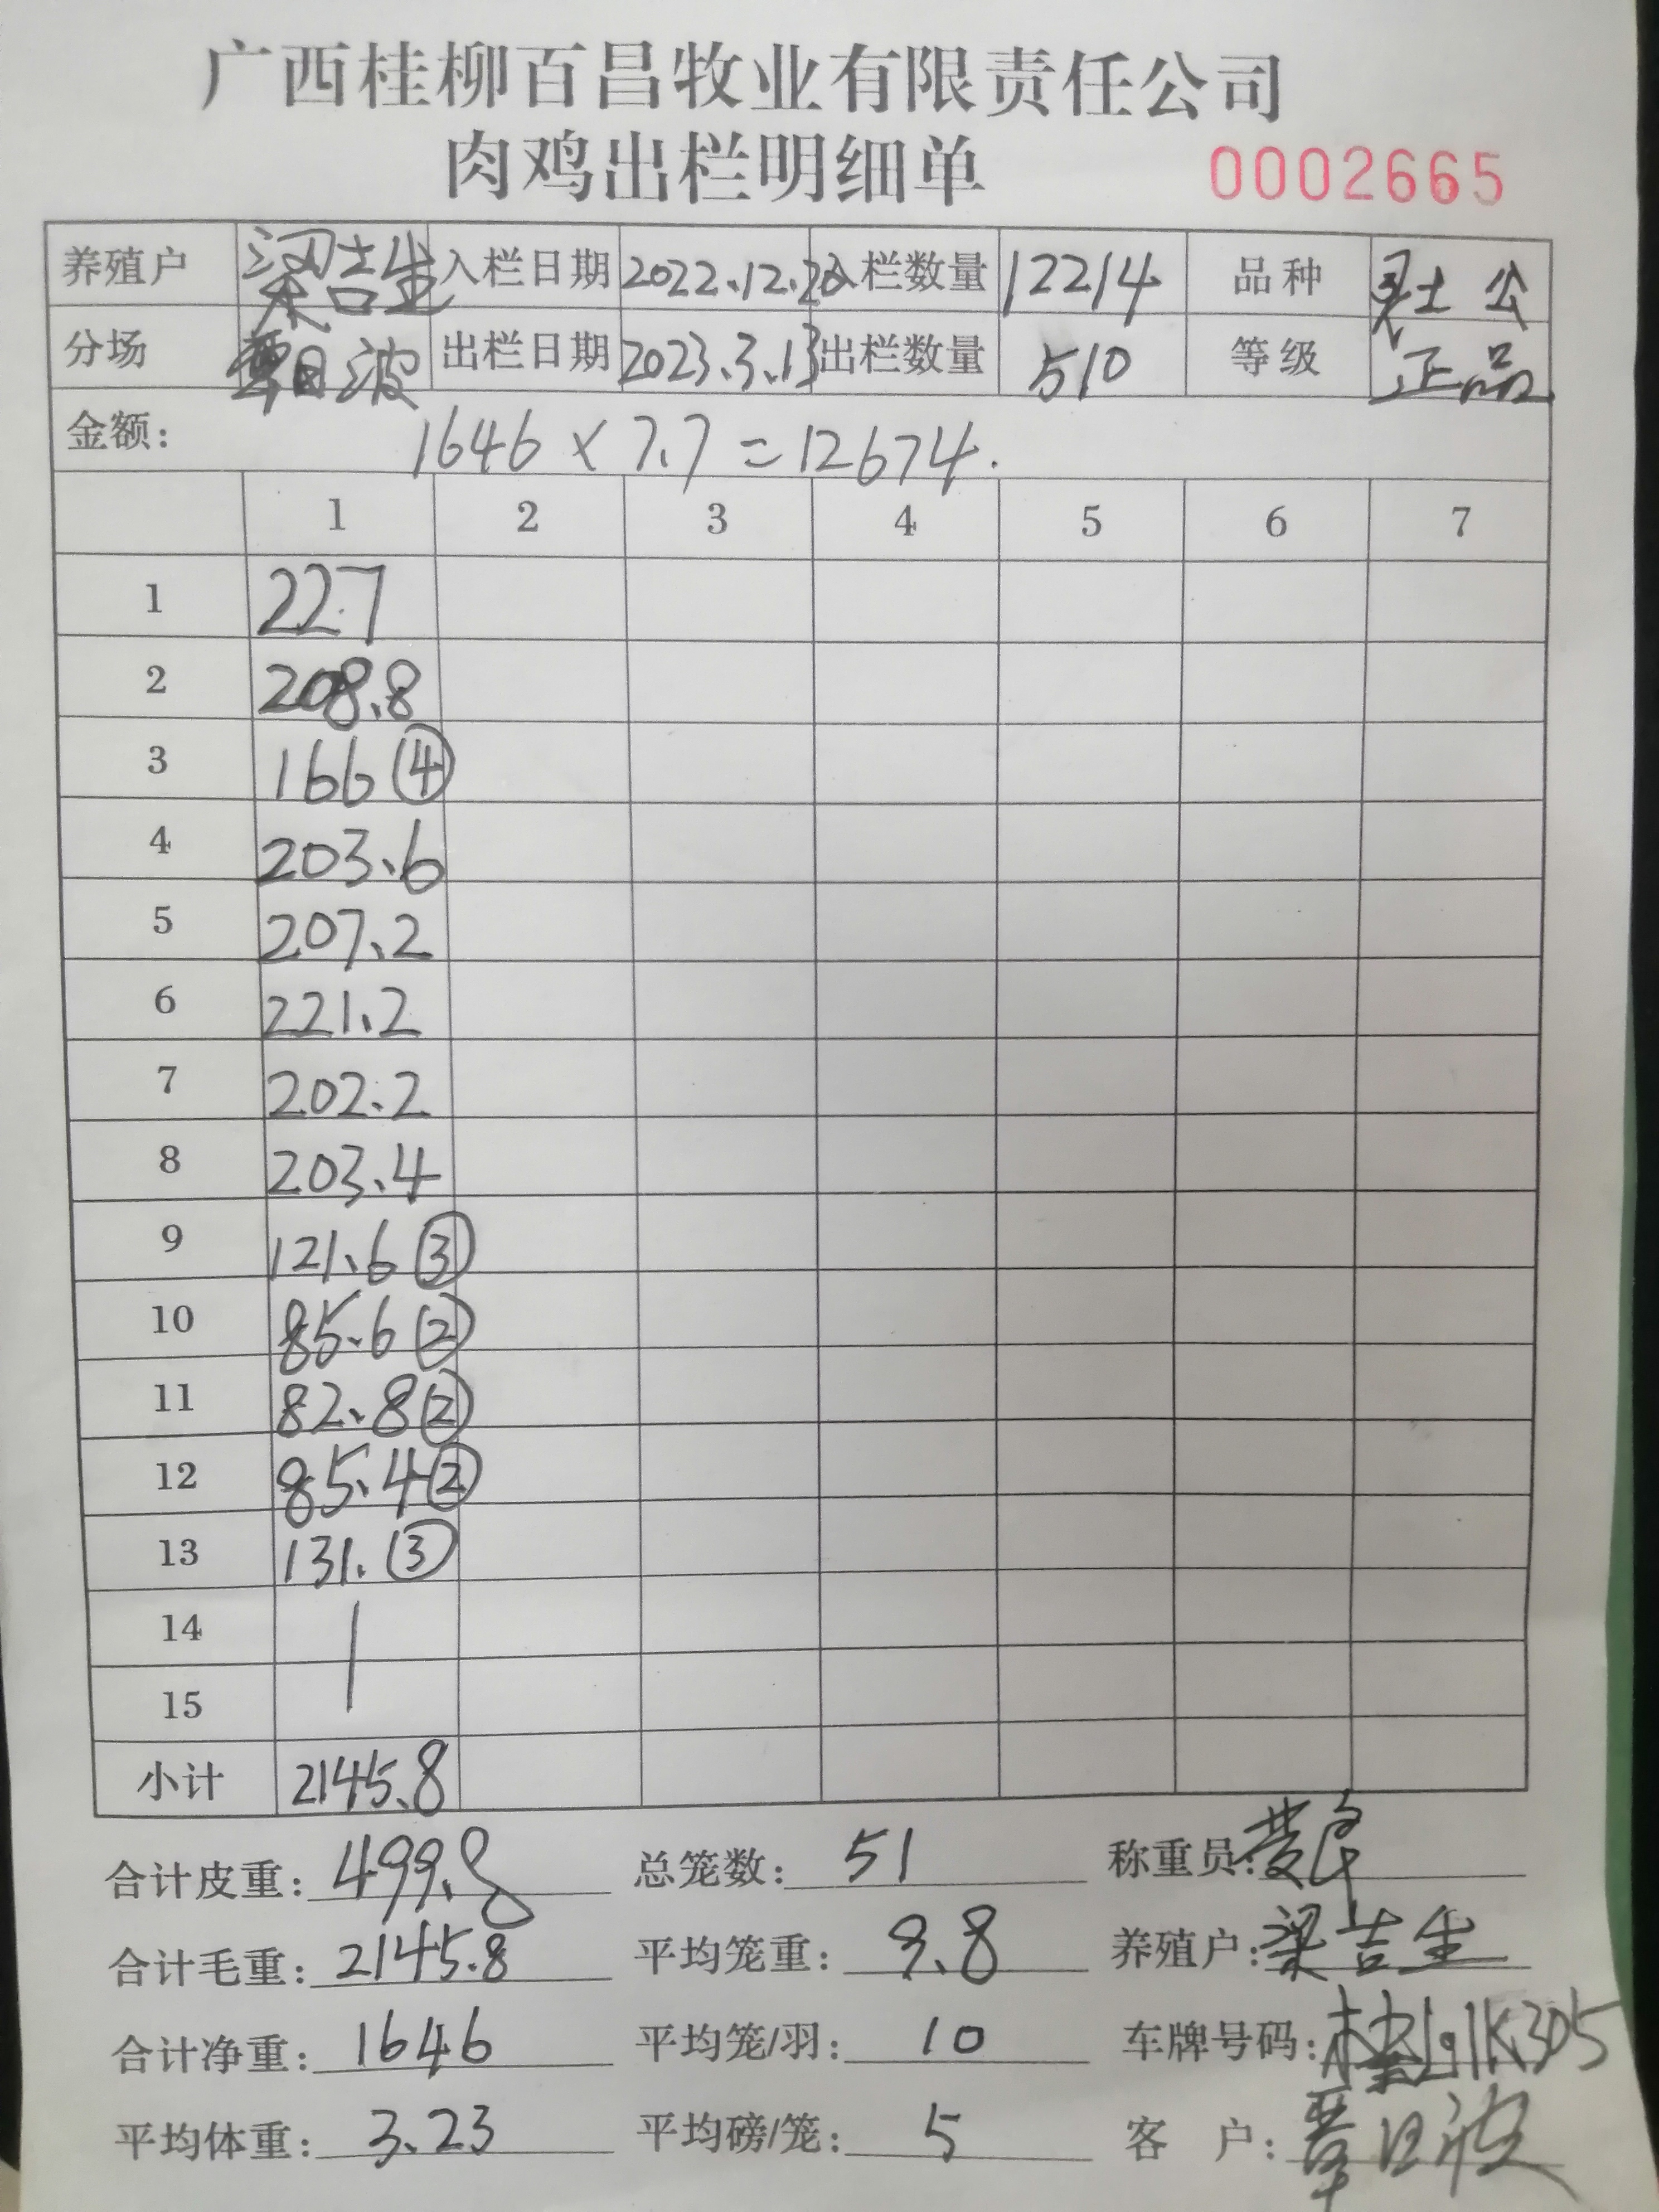 广西桂柳百昌牧业有限责任公司
肉鸡出栏明细单 0002665
养殖户 梁吉生 入栏日期 2022.12.20 入栏数量 12214 品种 土公
分场 日波 出栏日期 2023.3.13 出栏数量 510 等级 正品
金额: 1646 × 7.7 = 12674.
1 2 3 4 5 6 7
1 227
2 208.8
3 166 ④
4 203.6
5 207.2
6 221.2
7 202.2
8 203.4
9 121.6 ③
10 85.6 ②
11 82.8 ②
12 85.4 ②
13 131. ③
14
15
小计 2145.8
合计皮重: 499.8 总笼数: 51 称重员:
合计毛重: 2145.8 平均笼重: 9.8 养殖户: 梁吉生
合计净重: 1646 平均笼/羽: 10 车牌号码: K305
平均体重: 3.23 平均磅/笼: 5 客户: 日波